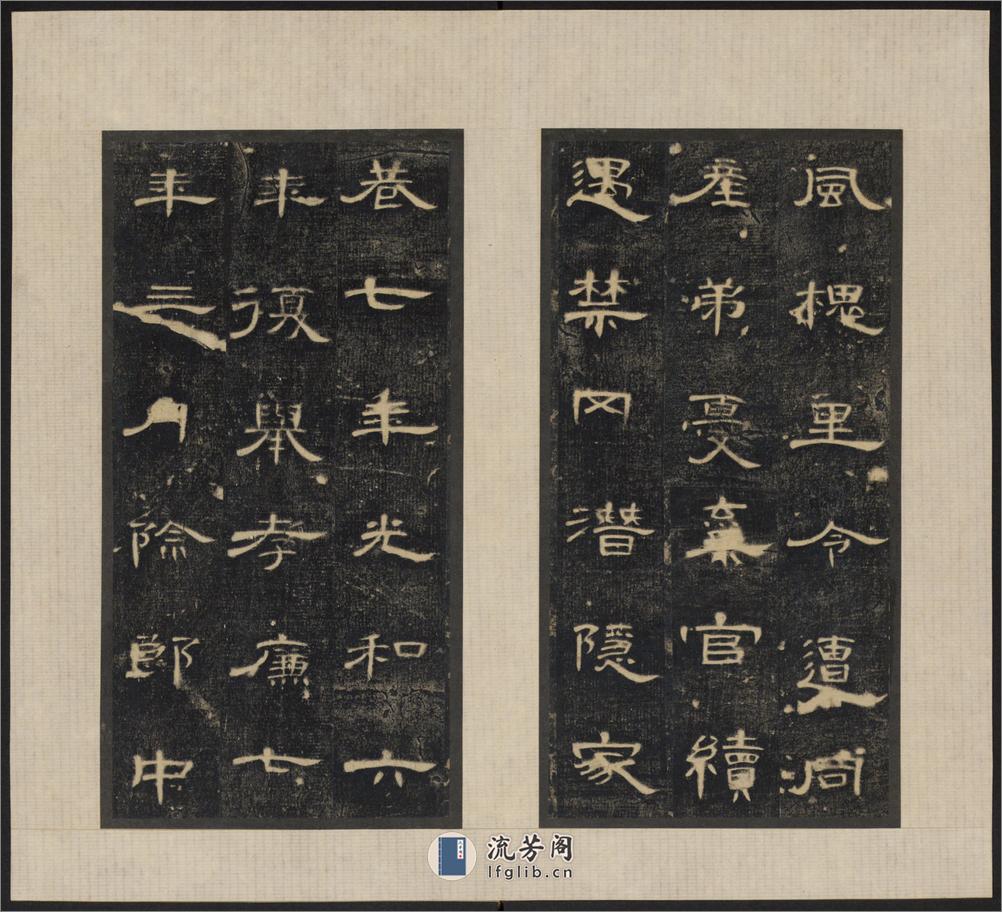 風槐里令遭同
產弟憂棄官續
遇禁冈潛隱家
巷七年光和六
年復舉孝廉七
年三月除郎中
流芳阁
lfglib.cn